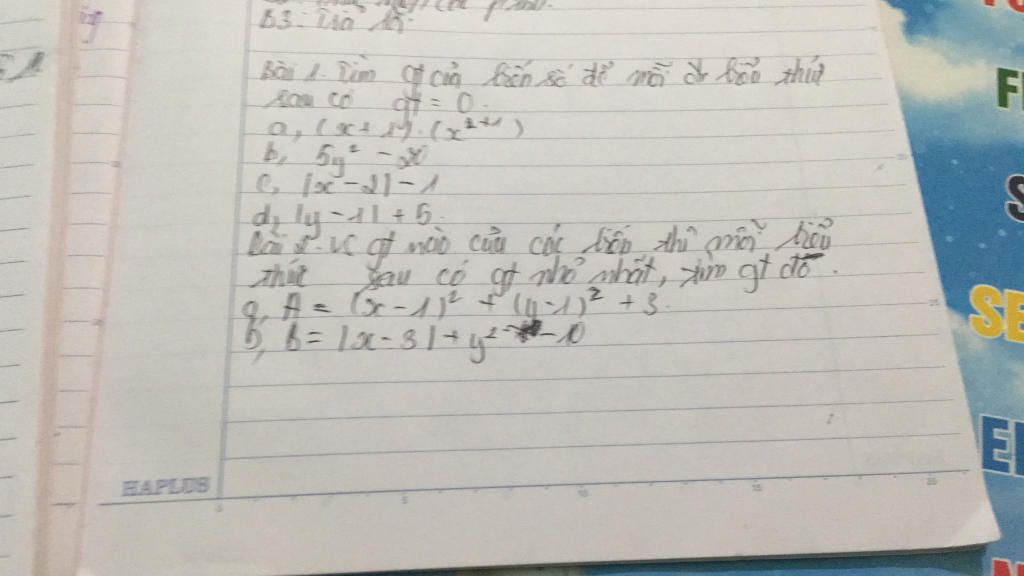 B3: Tra lời
Bài 1. Tìm gt của biến số để mỗi thức
sau có gt = 0.
a, (x + 1).(x²⁺¹)
b, 5y² - 20
c, |x - 2| - 1
d, |y - 1| + 5.
Bài 2. Vs gt nào của các biến thì mỗi biểu
thức sau có gt nhỏ nhất, tìm gt đó.
a, A = (x - 1)² + (y - 1)² + 3.
b, B = |x - 3| + y² - 10
HAPLUS
5 10 15 20